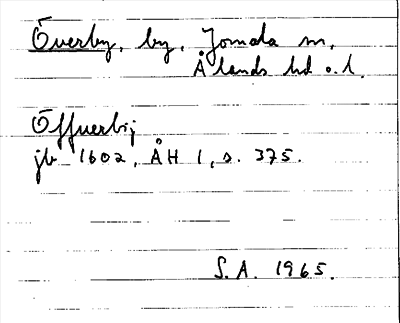 Överby, by, Jomala sn,
Ålands hd o. l.
Öffuerbij
jb 1602, ÅH 1, s. 375.
S.A. 1965.